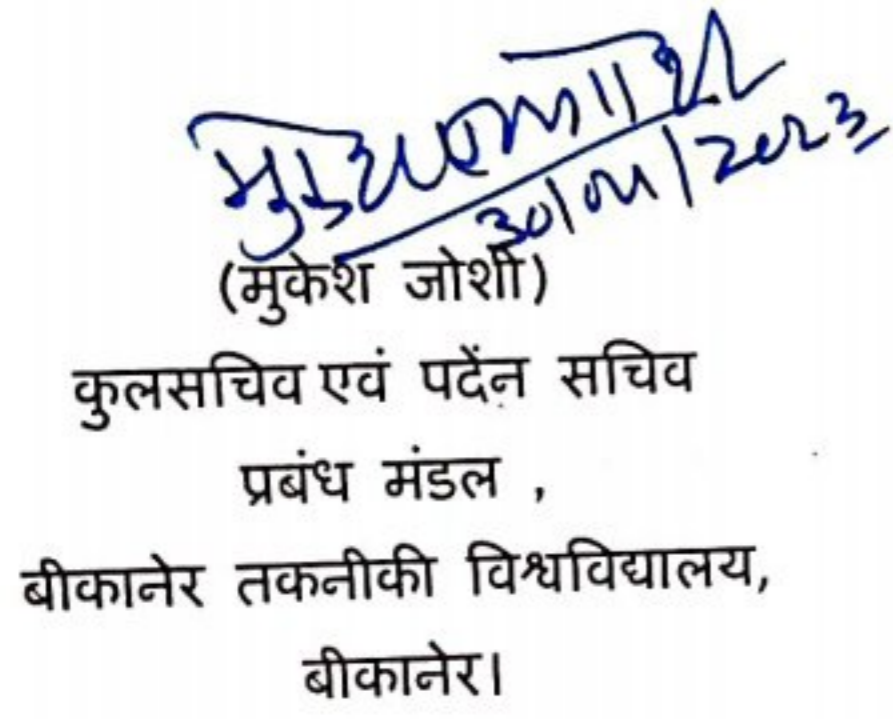 30/01/2023
(मुकेश जोशी)
कुलसचिव एवं पदेंन सचिव
प्रबंध मंडल ,
बीकानेर तकनीकी विश्वविद्यालय,
बीकानेर।